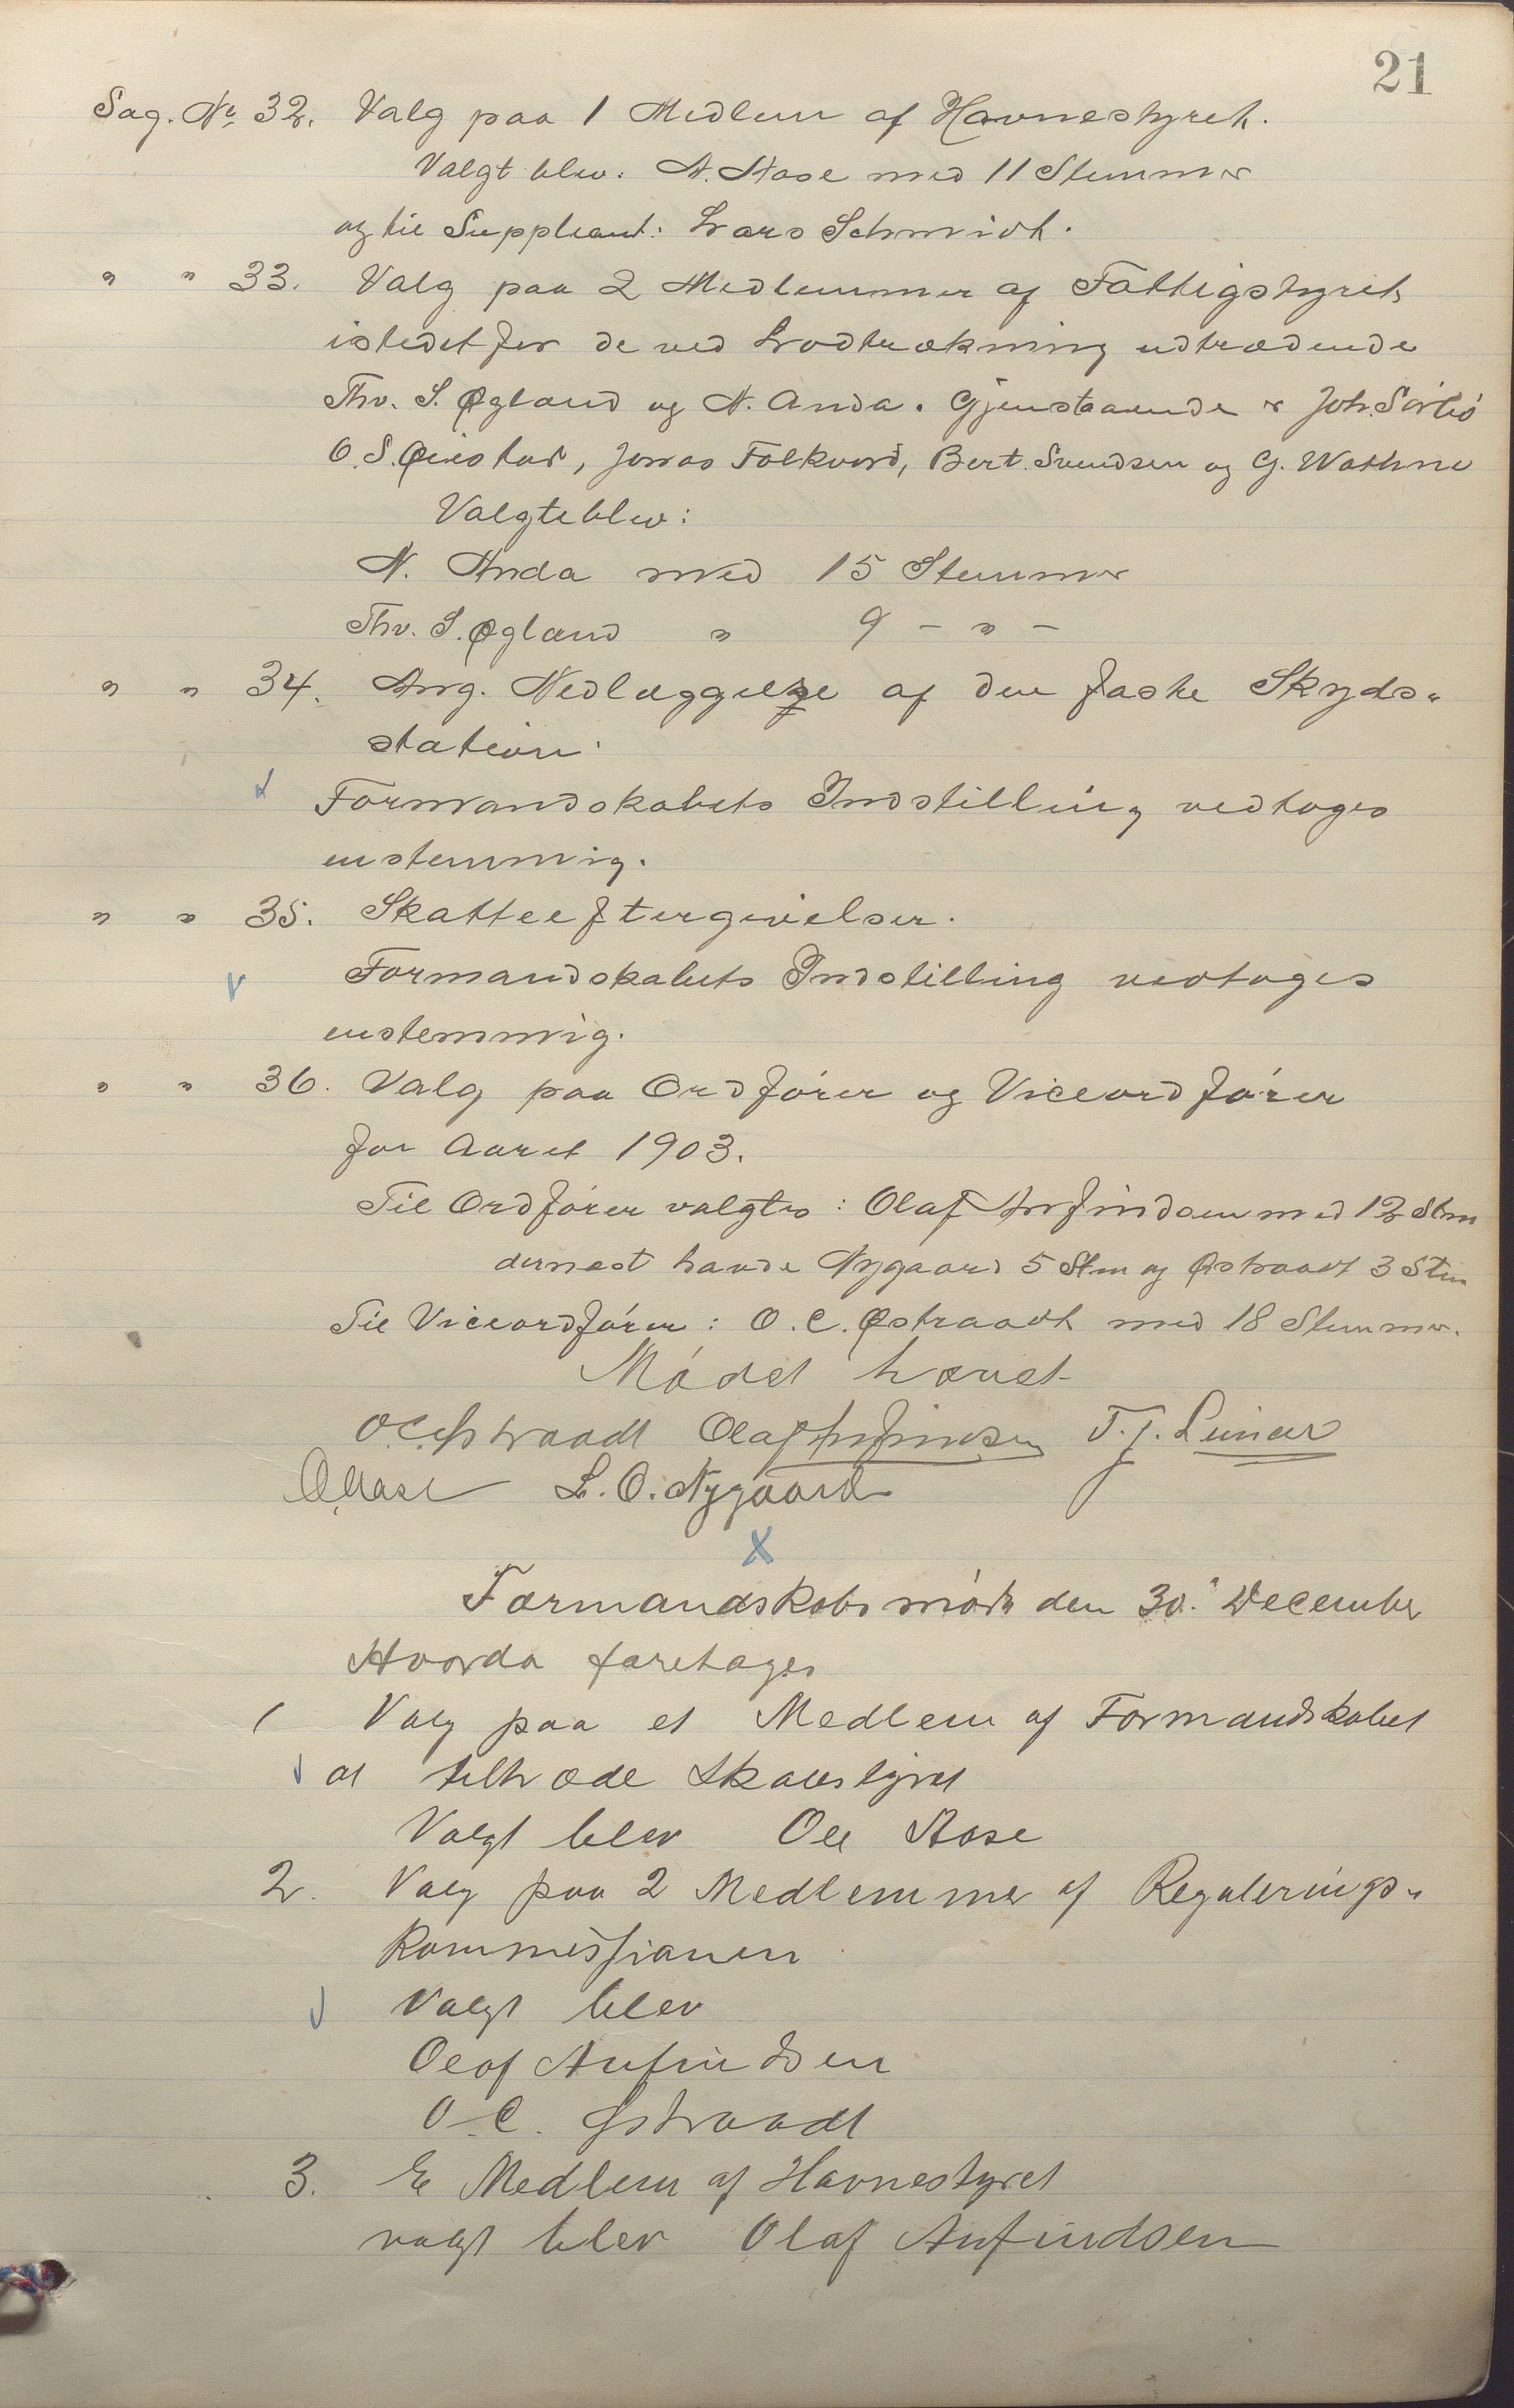 21
Sag. No 32. Valg paa 1 Medlem af Havnestyret.
Valgt blev: A. Aase med 11 Stemmer
og til Suppleant: Lars Schmidt.
" " 33. Valg paa 2 Medlemmer af Fattigstyret
istedetfor de ved Lodtrækning udtrædende
Thv. S. Øgland og N. Anda. Gjenstaaende er Joh. Sörbö
O. S. Qvistad, Jonas Folkvord, Bert. Svendsen og G. Wathne
Valgte blev:
N. Anda med 15 Stemmer
Thv. S. Øgland " 9 - " -
" " 34. Ang. Nedlæggelse af den faste Skyds-
station.
Formandskabets Indstilling vedtoges
enstemmig.
" " 35. Skatteeftergivelser.
Formandskabets Indstilling vedtoges
enstemmig.
" " 36. Valg paa Ordfører og Viceordfører
for Aaret 1903.
Til Ordfører valgtes: Olaf Arnfindsen med 12 Stm
dernæst havde Nygaard 5 Stm og Østraadt 3 Stm
Til Viceordfører: O. C. Østraadt med 18 Stemmer.
Mødet hævet
O C Østraadt Olaf Arnfindsen T. J.
O Aase L. O. Nygaard
X
Formandskabsmøde den 30. December
Hvorda foretages
1 Valg paa et Medlem af Formandskabet
at tiltræde Skolestyret
Valgt blev Ole Aase
2. Valg paa 2 Medlemmer af Regulerings-
kommissionen
Valgt blev
Olaf Arnfindsen
O. C. Østraadt
3. Et Medlem af Havnestyret
valgt blev Olaf Arnfindsen